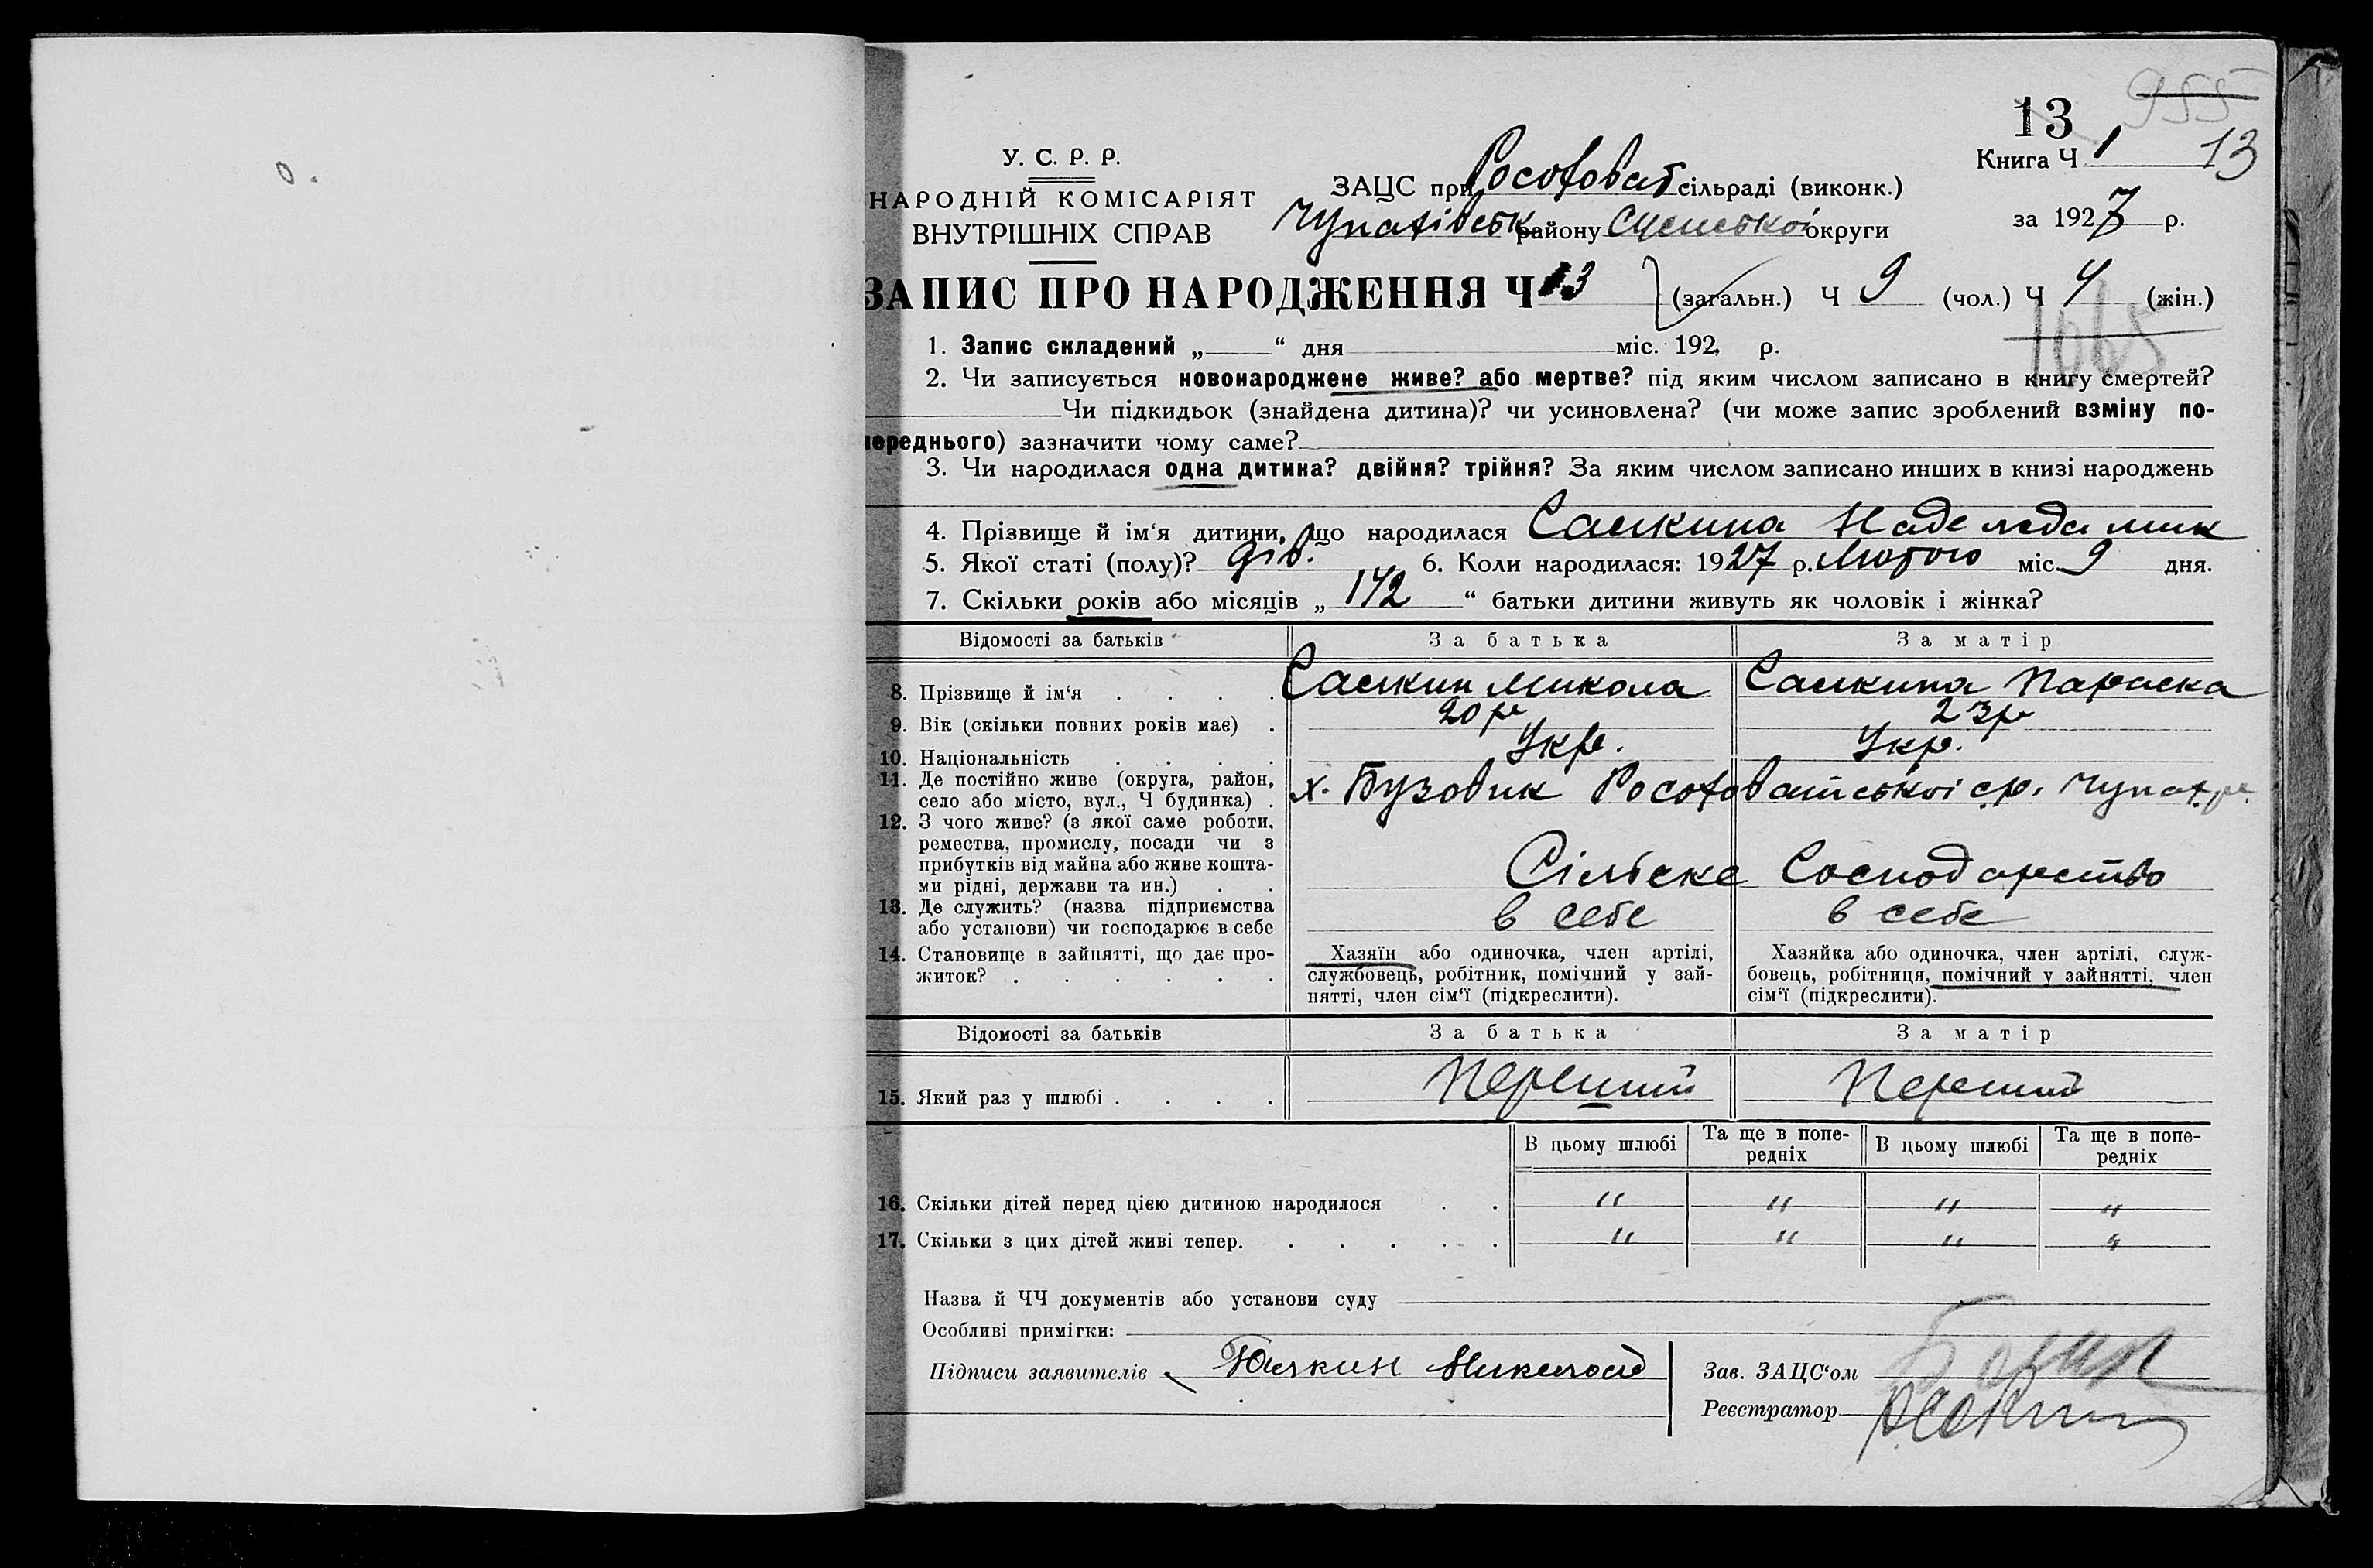 955
13
У. С. Р. Р.
Книга Ч 1 13
НАРОДНІЙ КОМІСАРІЯТ
ВНУТРІШНІХ СПРАВ
ЗАЦС при Росоховат сільраді (виконк.)
Чупахівськ району Сумської округи
за 1927 р.
ЗАПИС ПРО НАРОДЖЕННЯ Ч 13 (загальн.) Ч 9 (чол.) Ч 4 (жін.)
1065
1. Запис складений „ “ дня міс. 192 р.
2. Чи записується новонароджене живе? або мертве? під яким числом записано в книгу смертей?
Чи підкидьок (знайдена дитина)? чи усиновлена? (чи може запис зроблений взміну по-
переднього) зазначити чому саме?
3. Чи народилася одна дитина? двійня? трійня? За яким числом записано инших в книзі народжень
4. Прізвище й ім‘я дитини, що народилася Салкина Наделеда мик
5. Якої статі (полу)? дів. 6. Коли народилася: 1927 р. Лютого міс. 9 дня.
7. Скільки років або місяців „ 1 1/2 “ батьки дитини живуть як чоловік і жінка?
Відомості за батьків За батька За матір
8. Прізвище й ім‘я Салкин Микола Салкина Параска
9. Вік (скільки повних років має) 20 р 23 р
10. Національність Укр. Укр.
11. Де постійно живе (округа, район,
село або місто, вул., Ч будинка) х. Бузовик Росоховатської с.р. Чупах. р.
12. З чого живе? (з якої саме роботи,
ремества, промислу, посади чи з
прибутків від майна або живе кошта-
ми рідні, держави та ин.) Сільське Господарство
13. Де служить? (назва підприємства
або установи) чи господарює в себе в себе в себе
14. Становище в зайнятті, що дає про-
житок?
Хазяїн або одиночка, член артілі,
службовець, робітник, помічний у зай-
нятті, член сім‘ї (підкреслити).
Хазяйка або одиночка, член артілі, служ-
бовець, робітниця, помічний у зайнятті, член
сім‘ї (підкреслити).
Відомості за батьків За батька За матір
15. Який раз у шлюбі Перший Перший
В цьому шлюбі Та ще в попе-
редніх В цьому шлюбі Та ще в попе-
редніх
16. Скільки дітей перед цією дитиною народилося " " " "
17. Скільки з цих дітей живі тепер. " " " "
Назва й ЧЧ документів або установи суду
Особливі примітки:
Підписи заявителів
Зав. ЗАЦС‘ом
Реєстратор